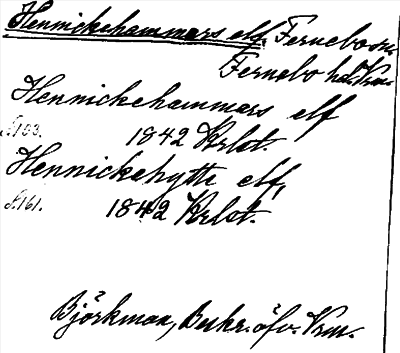 Hennickehammars elf. Fernebo sn.
Fernebo hd. Vrm.
Hennickehammars elf
s. 163. 1842 Krlot.
Hennickehytte elf,
s. 161. 1842 Krlot.
Björkman, Beskr. öfv. Vrm.